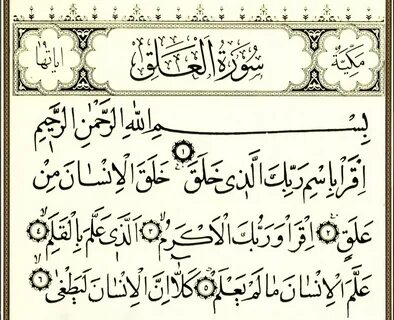 مكية سورة العلق اياتها
بِسْمِ اللهِ الرَّحْمٰنِ الرَّحِيمِ
اِقْرَأْ بِاسْمِ رَبِّكَ الَّذِى خَلَقَ ۝١ خَلَقَ الْاِنْسَانَ مِنْ
عَلَقٍ ۝٢ اِقْرَأْ وَرَبُّكَ الْاَكْرَمُ ۝٣ اَلَّذِى عَلَّمَ بِالْقَلَمِ ۝٤
عَلَّمَ الْاِنْسَانَ مَا لَمْ يَعْلَمْ ۝٥ كَلَّا اِنَّ الْاِنْسَانَ لَيَطْغٰى ۝٦